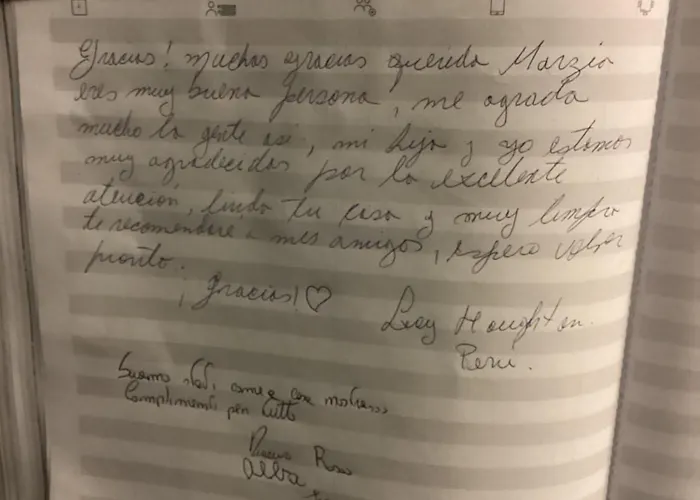 Gracias! muchas gracias querida Marzia
eres muy buena persona, me agrada
mucho la gente asi, mi hija y yo estamos
muy agradecidas por la excelente
atención, linda tu casa y muy limpia
te recomendare a mis amigos, espero volver
pronto.
¡Gracias! ♡
Houghton.
Perú.
Siamo stati, come a casa nostra
Complimenti per tutto
Alba